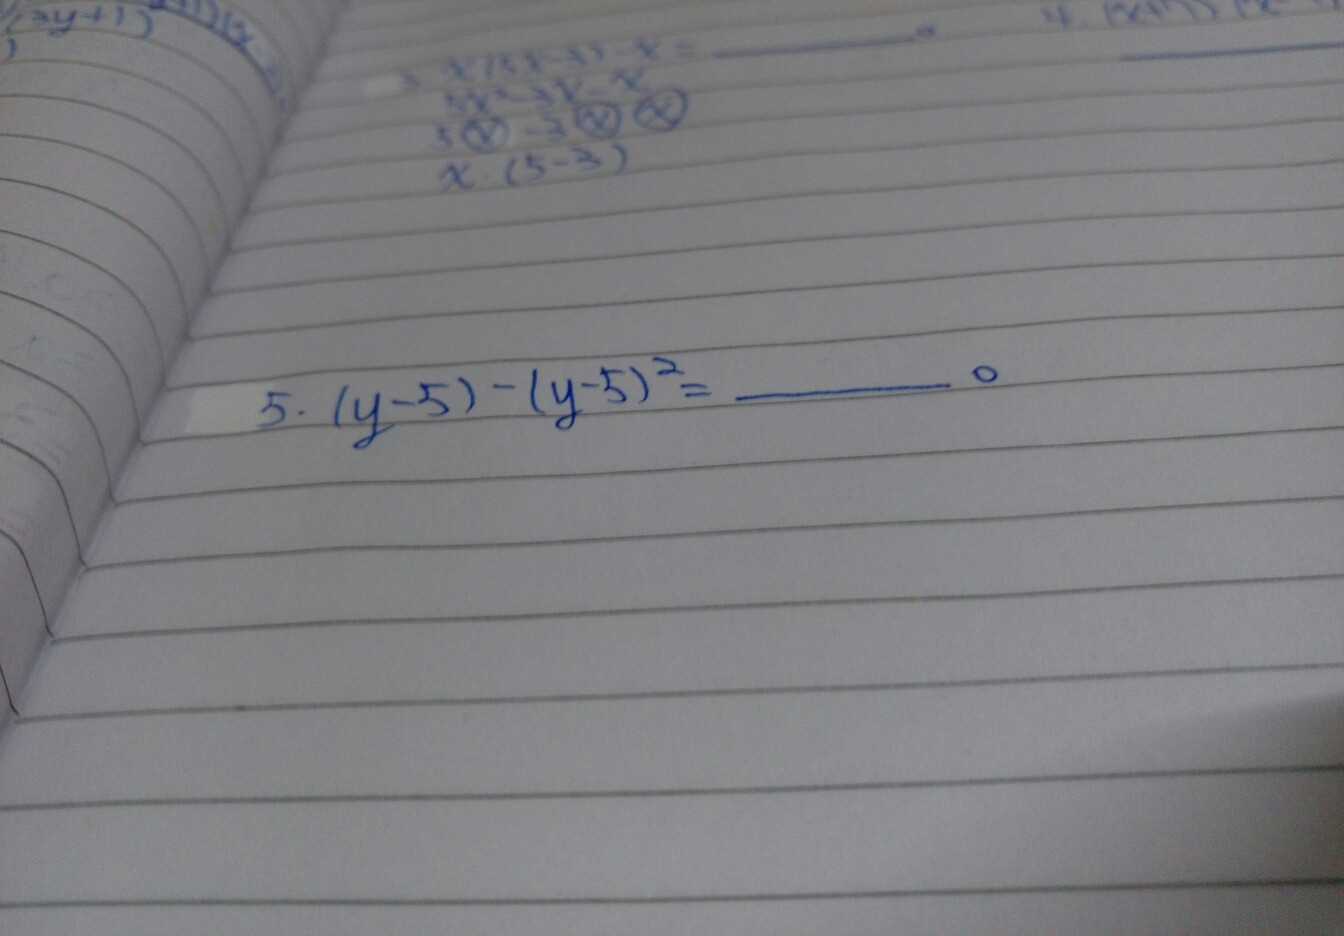 (3y+1)
)
3. x(5x-3)-x = ________。
5x²-3x-x
5ⓧ-3ⓧⓧ
x·(5-3)
5. (y-5)-(y-5)²= ________。